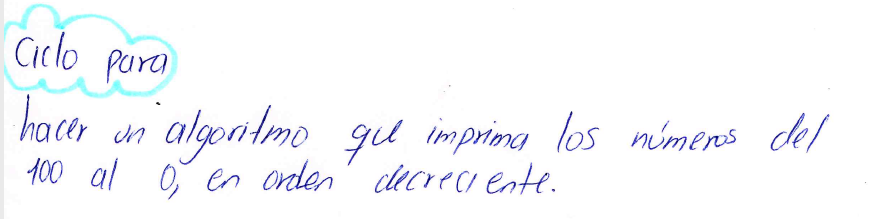 Ciclo para
hacer un algoritmo que imprima los números del
100 al 0, en orden decreciente.